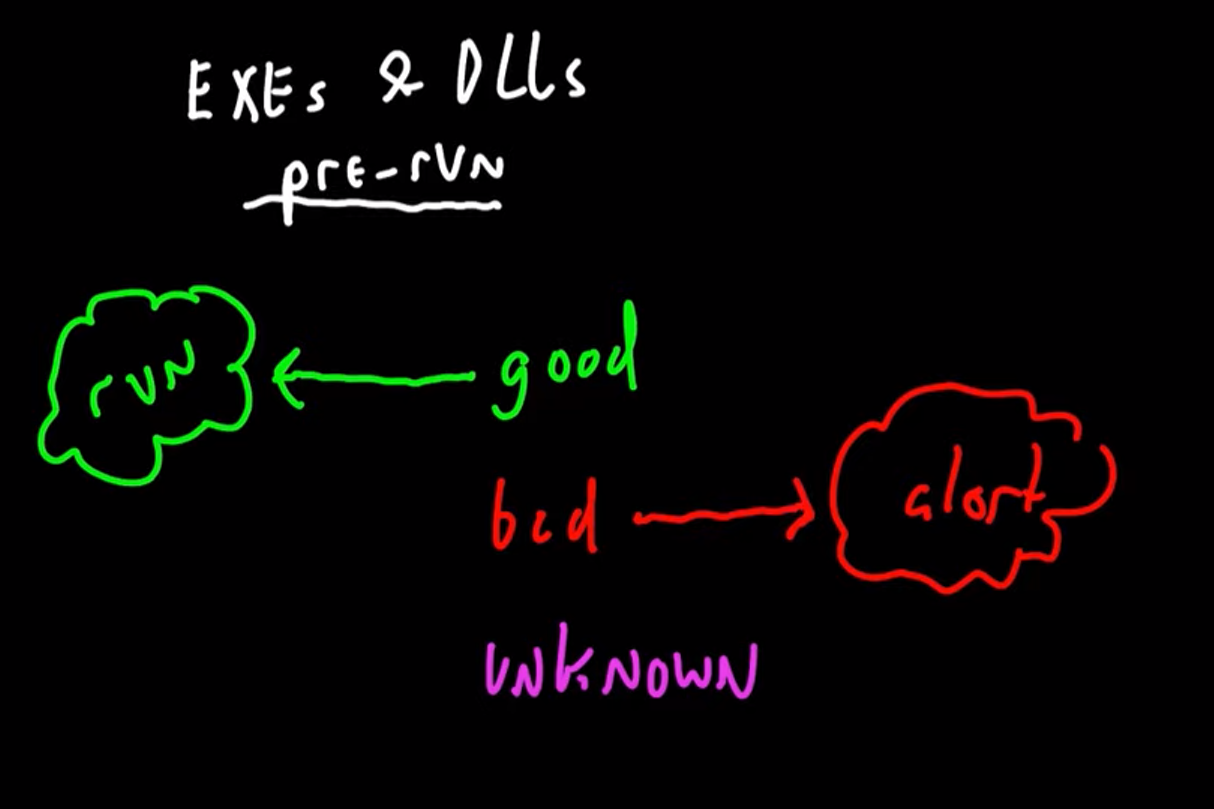 EXEs & DLLs
pre-run
run
good
bad
alert
unknown